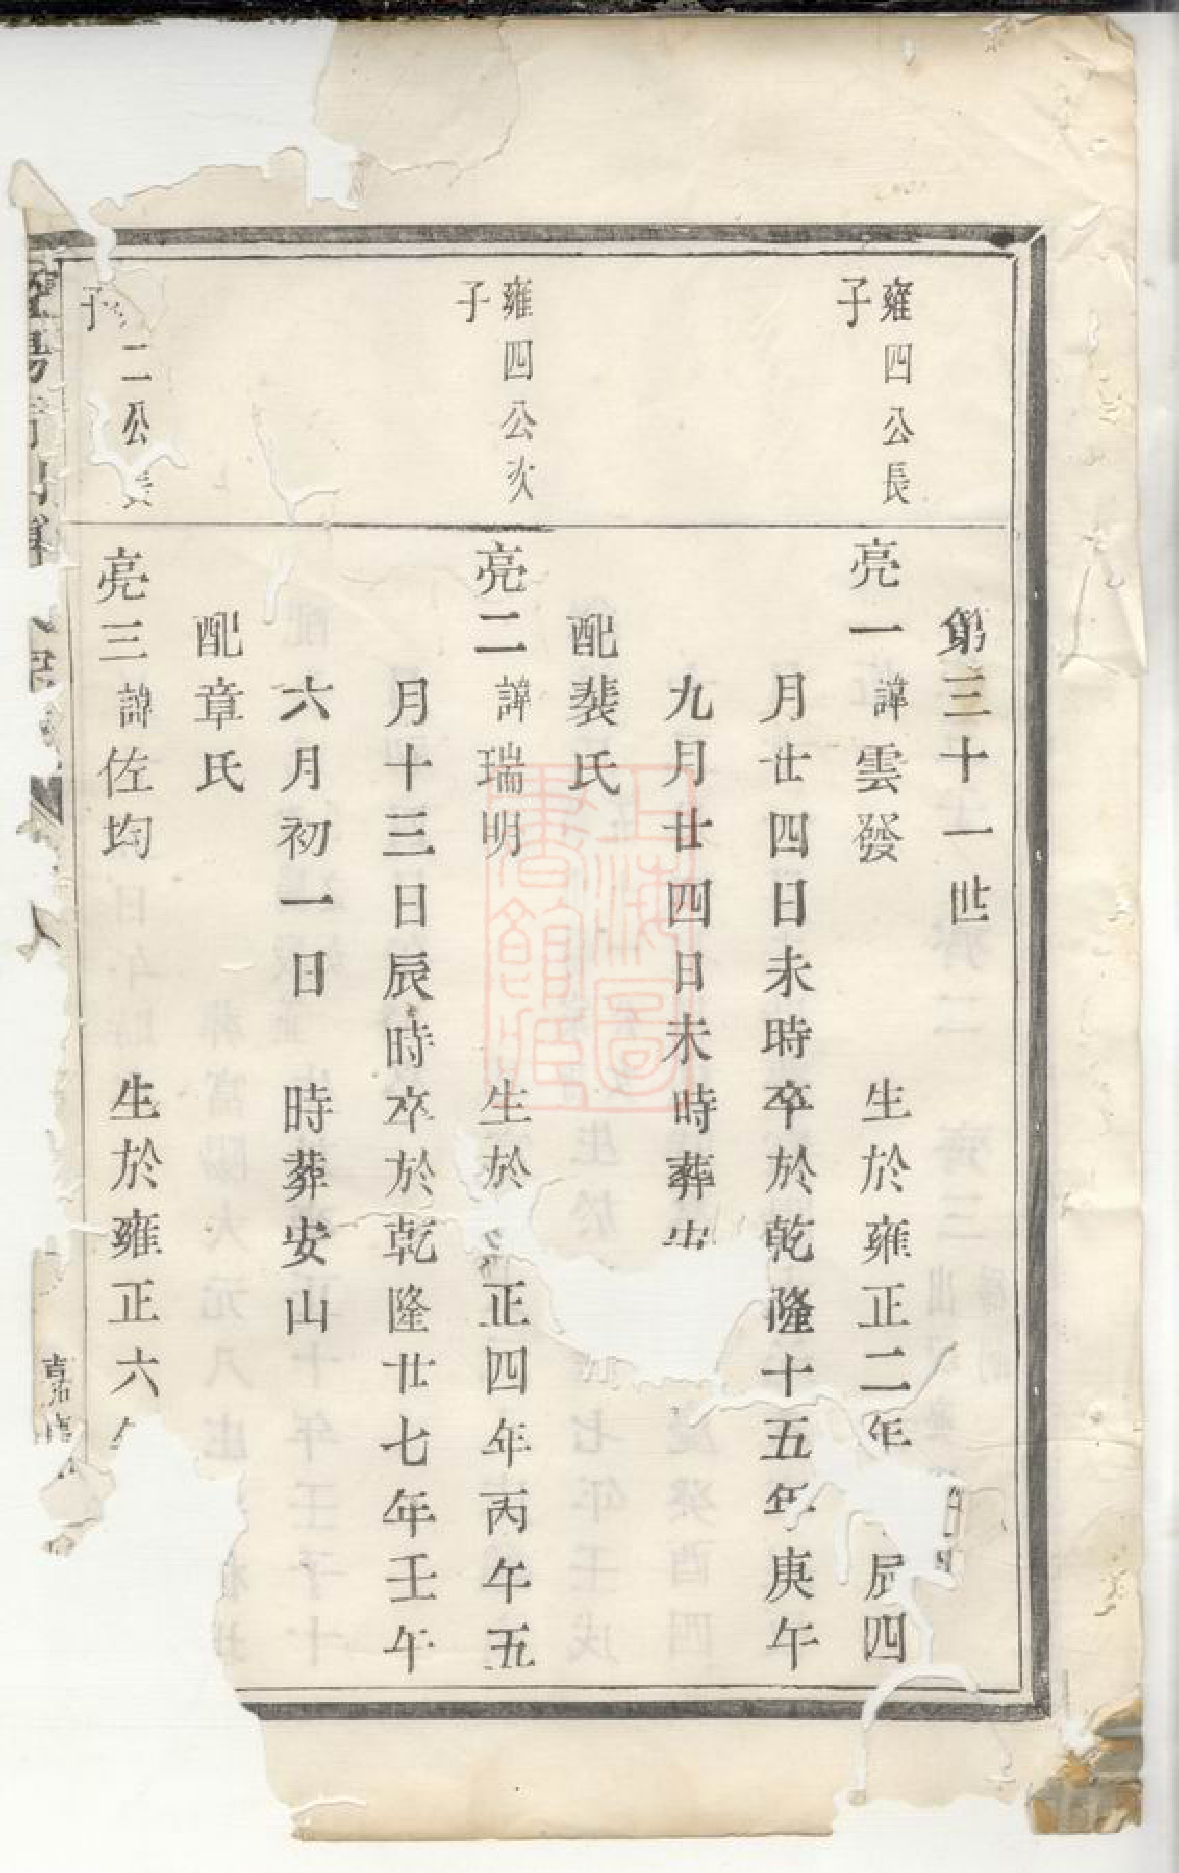 第三十一世
雍四公長
子
亮一諱雲發 生於雍正二年 辰四
月廿四日未時卒於乾隆十五年庚午
九月廿四日未時葬
配裴氏
雍四公次
子
亮二諱瑞明 生於 正四年丙午五
月十三日辰時卒於乾隆廿七年壬午
六月初一日 時葬安山
配章氏
二公
子
亮三諱佐均 生於雍正六
嘉
上海圖
書館藏